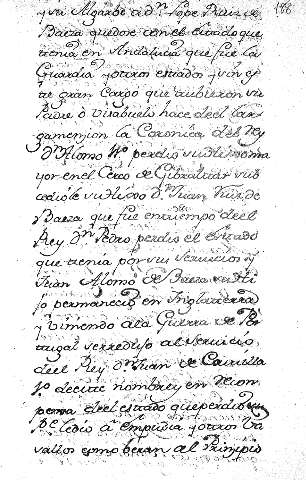 186
y su Algarbe a dn Lope Ruiz de
Baeza quedose con el estado que
tenia en Andalucia que fue la
Guardia y otros estados y sin es
te gran Cargo que tubieron su
Padre o Visabuelo hace del lar
gamente la Coronica del Rey
dn Alonso perdio su Hijo ma
yor en el Cerco de Gibraltar sub
cediole su Hijo dn Juan Ruiz de
Baeza que fue en tiempo del
Rey dn Pedro perdio el estado
que tenia por su servicio y
Juan Alonso de Baeza su Hi
jo permanecio en Inglaterra
y viniendo a la Guerra de Po
tugal se redujo al servicio
del Rey dn Juan de Castilla
Jo de este nombre y en Recom
pensa del estado que perdio su
Pe le dio a Empudia y otros Va
vallos como beran al Principio